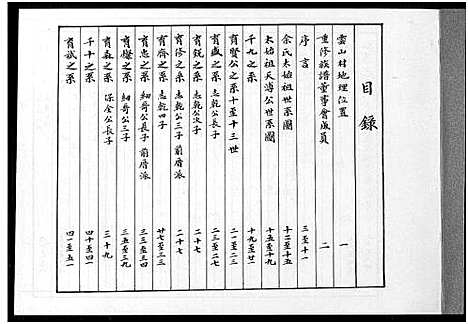 目錄
雲山村地理位置 一
重修族譜董事會成員 二
序言 三至十一
余氏太始祖世系圖 十二至十五
太始祖天溥公世系圖 十五至十九
千九之系 十九至廿一
育賢公之系十至十三世 二一至二三
育盛之系 志乾公長子 二三至二七
育銳之系 志乾公次子 二十七
育修之系 志乾公三子 前厝派 二十七
育齊之系 志乾四子 廿七至三三
育忠之系 細哥公長子 前厝派 三三至三四
育穩之系 細哥公三子 三五至三九
育森之系 保全公長子 三十九
千十之系 四十至四一
育斌之系 四一至五一